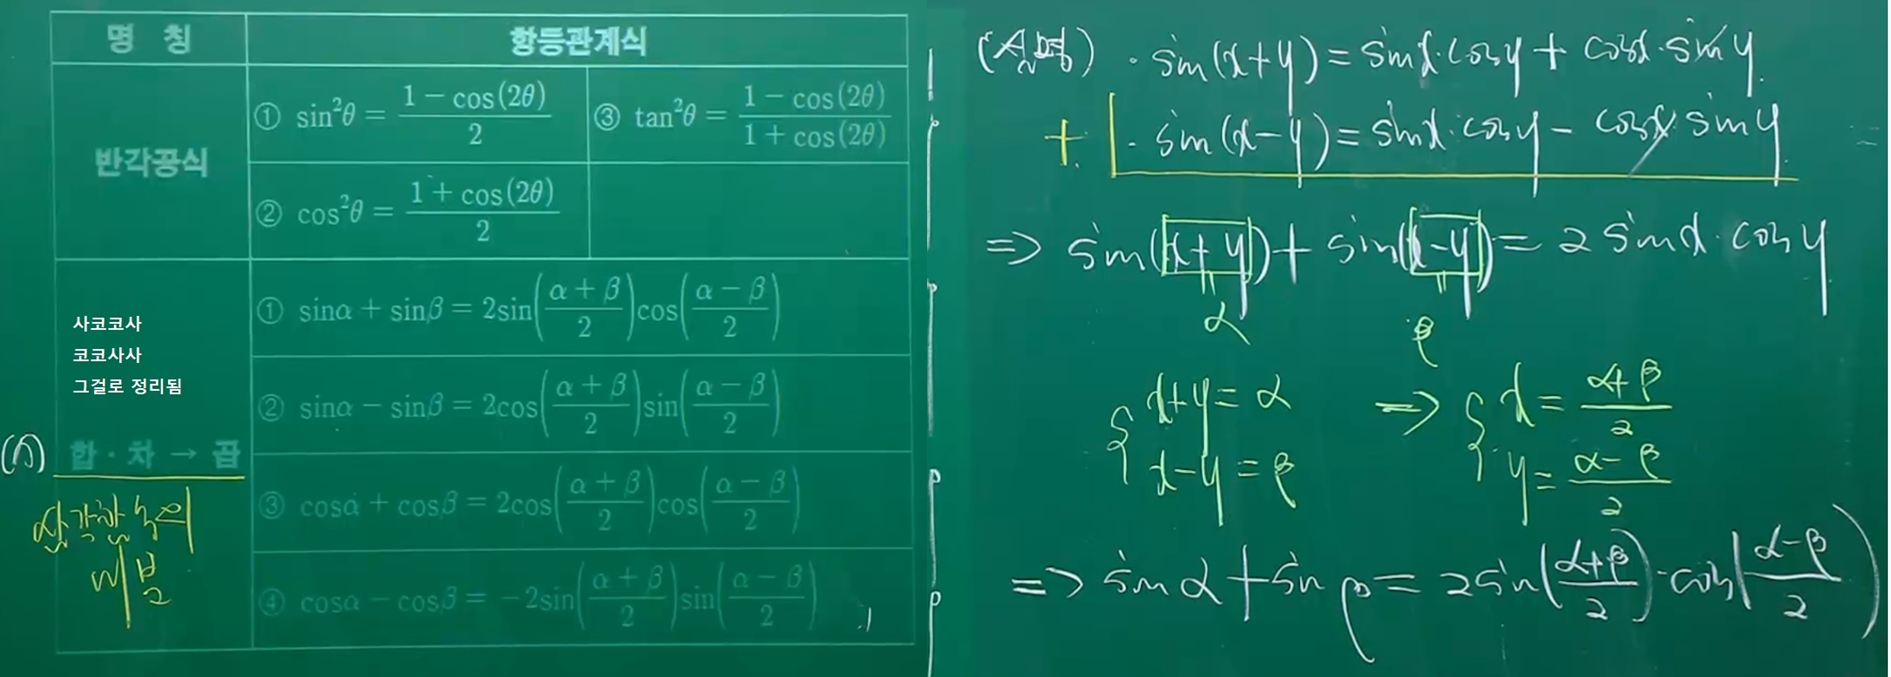 명 칭
항등관계식
반각공식
① sin²θ = (1 − cos(2θ))/2
③ tan²θ = (1 − cos(2θ))/(1 + cos(2θ))
② cos²θ = (1 + cos(2θ))/2
사코코사
코코사사
그걸로 정리됨
합 · 차 → 곱
삼각함수의
미분
① sinα + sinβ = 2sin((α + β)/2)cos((α − β)/2)
② sinα − sinβ = 2cos((α + β)/2)sin((α − β)/2)
③ cosα + cosβ = 2cos((α + β)/2)cos((α − β)/2)
④ cosα − cosβ = −2sin((α + β)/2)sin((α − β)/2)
· sin(x+y) = sinx·cosy + cosx·siny
+ · sin(x−y) = sinx·cosy − cosx·siny
⇒ sin(x+y) + sin(x−y) = 2sinx·cosy
= α = β
{ x+y = α ⇒ { x = (α+β)/2
x−y = β y = (α−β)/2
⇒ sinα + sinβ = 2sin((α+β)/2)·cos((α−β)/2)